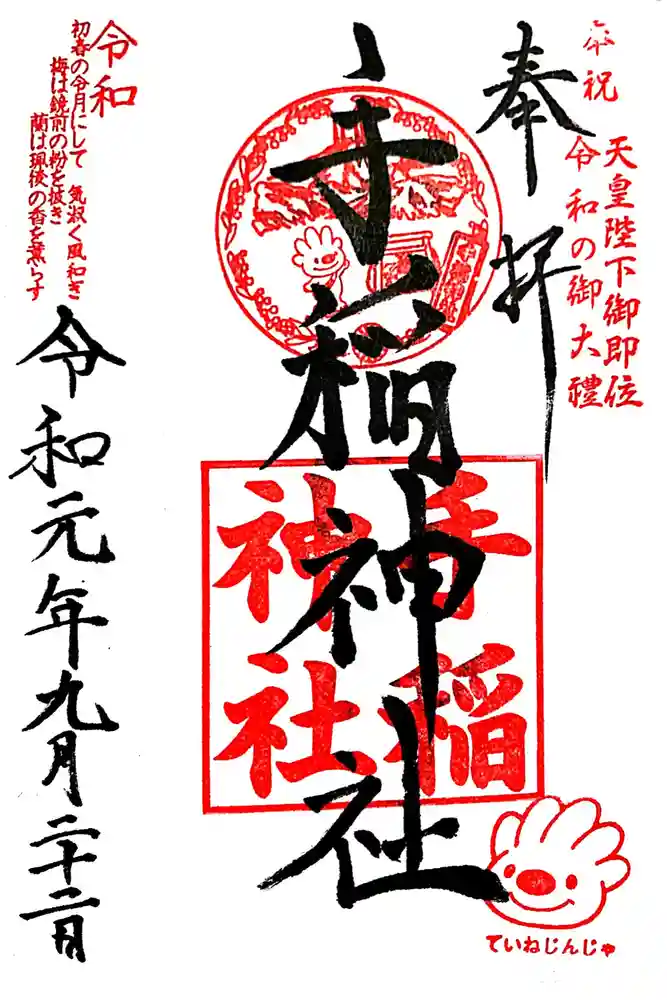 奉祝
天皇陛下御即位
令和の御大禮
奉拝
手稲神社
手稲
神社
ていねじんじゃ
令和
初春の令月にして　気淑く風和ぎ
梅は鏡前の粉を披き
蘭は珮後の香を薫らす
令和元年九月二十二日